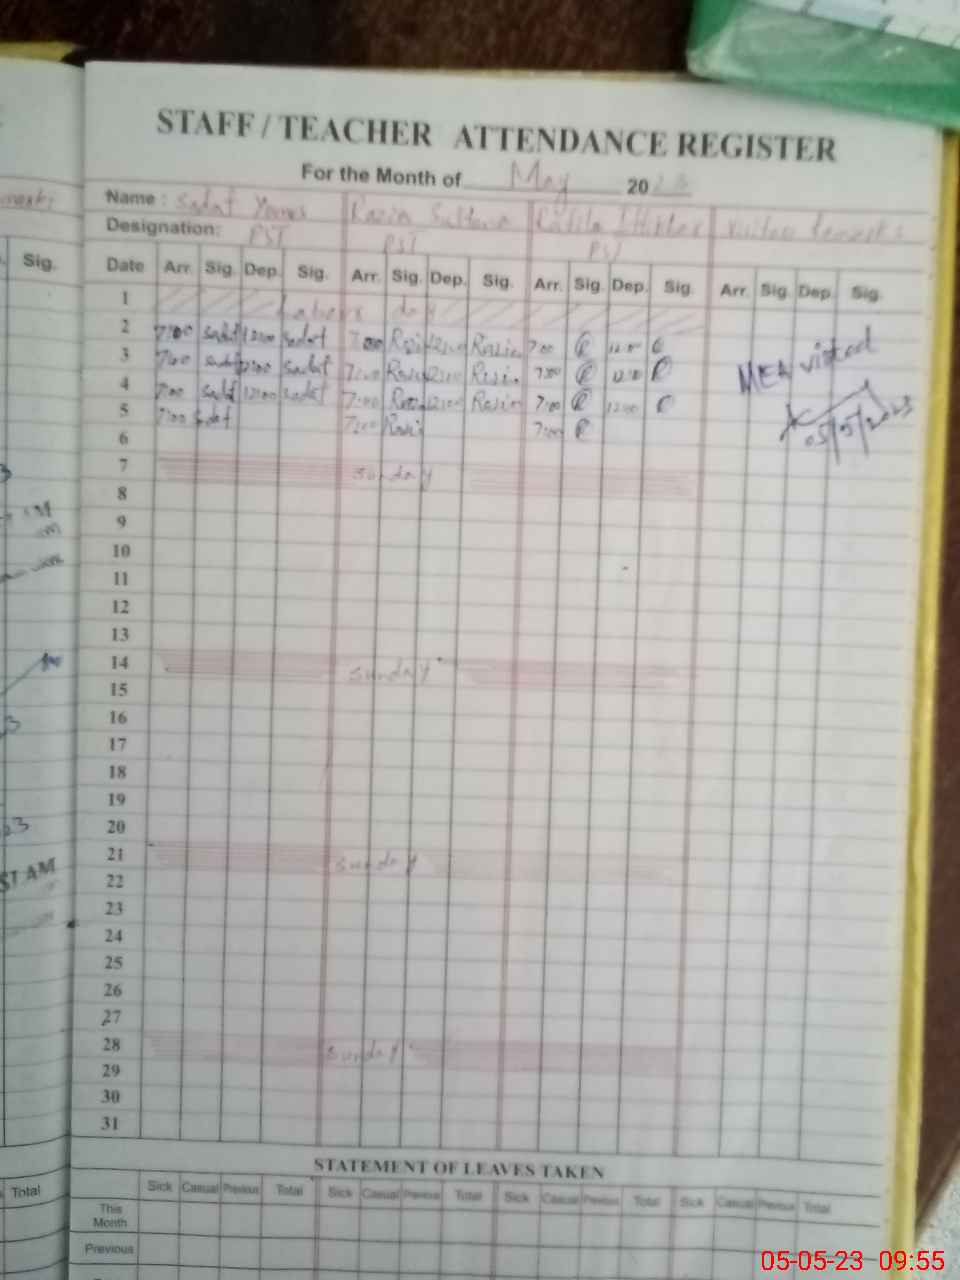 STAFF / TEACHER ATTENDANCE REGISTER
For the Month of May 20
Name : Sadaf Razia Sultana visitors Remarks
Designation: PST PST PST
Date Arr. Sig. Dep. Sig. Arr. Sig. Dep. Sig. Arr. Sig. Dep. Sig. Arr. Sig. Dep. Sig.
Sig.
1 Labour day
2 7:00 Sadaf 12:00 Sadaf 7:00 Razia 12:00 Razia 7:00 12:00
3 7:00 Sadaf 12:00 Sadaf 7:00 Razia 12:00 Razia 7:00 12:00 MEA visited
4 7:00 Sadaf 12:00 Sadaf 7:00 Razia 12:00 Razia 7:00 12:00
5 7:00 Sadaf 7:00 Razia 7:00 05/5/2023
6
7 Sunday
8
9
10
11
12
13
14 Sunday
15
16
17
18
19
20
21 Sunday
22
23
24
25
26
27
28 Sunday
29
30
31
STATEMENT OF LEAVES TAKEN
Sick Casual Previous Total Sick Casual Previous Total Sick Casual Previous Total Sick Casual Previous Total
Total
This
Month
Previous
05-05-23 09:55